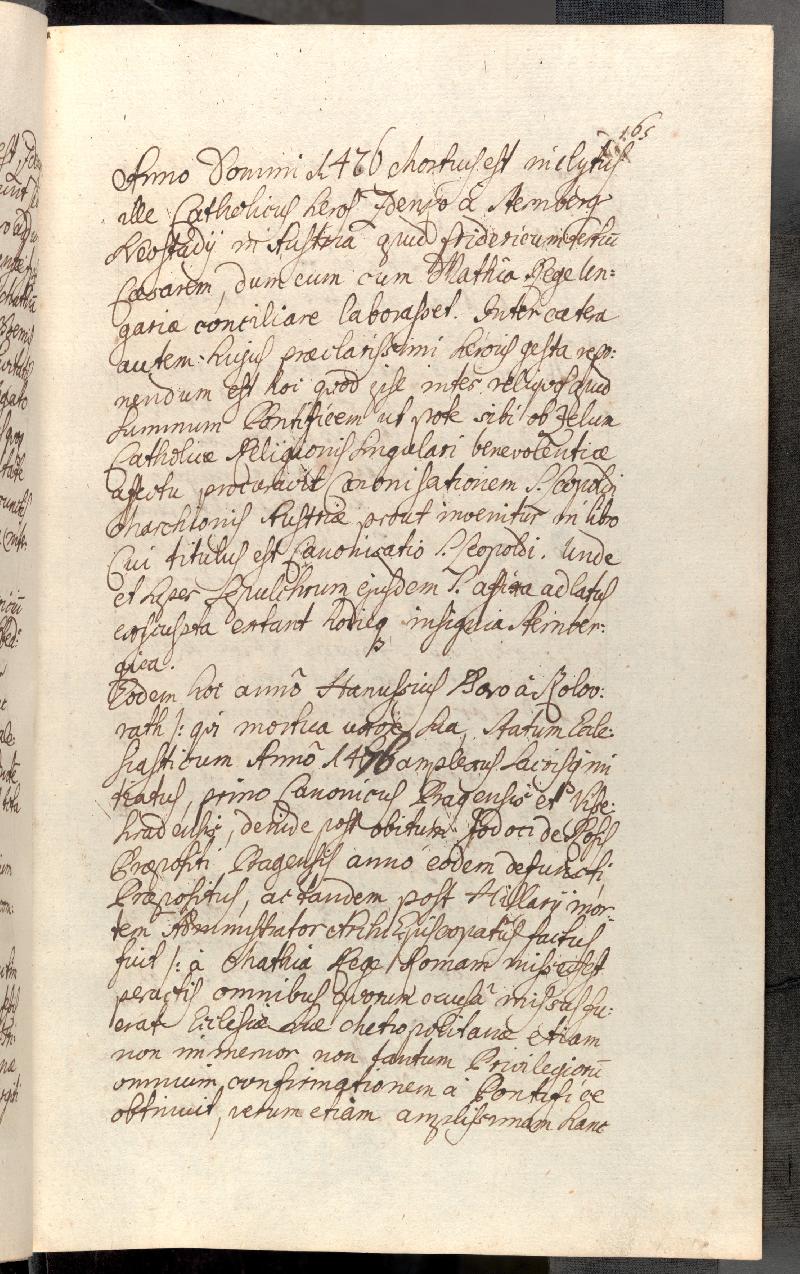 165
Anno Domini 1476 Mortuus est inclytus
ille Catholicus heros Zdenko à Sternberg
Neostadij in Austria apud Fridericum tertiū
Caesarem, dum eum cum Mathia Rege Un=
gariae conciliare laborasset. Inter caetera
autem hujus praeclarissimi herois gesta repo=
nendum est hoc quod ipse inter reliquos apud
summum Pontificem ut pote sibi ob Zelum
Catholicae Religionis singulari benevolentiae
affectu procuravit Canonisationem S. Leopoldi
Marchionis Austriae prout invenitur in libro
Cui titulus est Canonisatio S. Leopoldi. Unde
et super sepulchrum ejusdem S. affixa ad latus
exsculpta extant hodieq insignia Sternber=
gica.
Eodem hoc anno Hanussius Baro à Kolow=
rath /: qui mortua uxore sua, Statum Eccle=
siasticum Anno 1476 amplexus sacris ini
tiatus, primo Canonicus Pragensis et Visse=
hradensis, deinde post obitum Jodoci de Rosis
Praepositi Pragensis anno eodem defuncti
Praepositus, ac tandem post Hillarij mor=
tem Administrator Archi Episcopatus factus
fuit /: à Mathia Rege Romam missus est
peractis omnibus quorum causâ missus fu=
erat Ecclesiae suae Metropolitanae etiam
non immemor non tantum Privilegiorū
omnium confirmationem à Pontifice
obtinuit, verum etiam amplissimam hanc